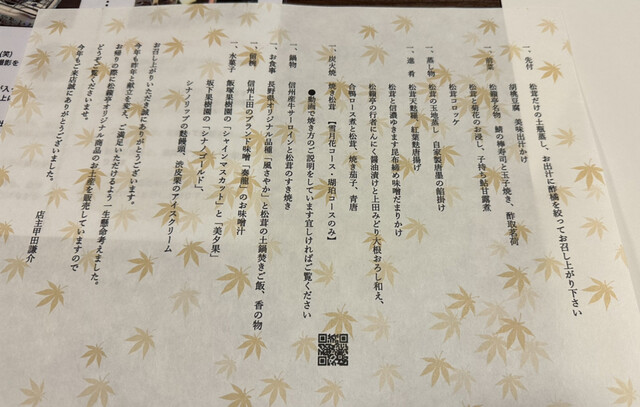 一、先付　松茸だけの土瓶蒸し、お出汁に酢橘を絞ってお召し上がり下さい
胡桃豆腐　美味出汁かけ
一、前菜　松籟亭名物　鯖の棒寿司と玉子焼き、酢取茗荷
松茸と菊花のお浸し、子持ち鮎甘露煮
松茸コロッケ
一、蒸し物　松茸の玉地蒸し　自家製唐墨の餡掛け
一、進肴　松茸天麩羅、紅葉麩唐揚げ
松茸と信濃ゆきます昆布締め味噌だまりかけ
松籟亭の行者にんにく醤油漬けと上田みどり大根おろし和え、
合鴨ロース煮と松茸、焼き茄子、青唐
一、炭火焼　焼き松茸　【雪月花コース・瑚珀コースのみ】
●動画で焼き方のご説明をしています宜しければご覧ください
一、鍋物　信州産牛サーロインと松茸のすき焼き
一、お食事　長野県オリジナル品種「風さやか」と松茸の土鍋焚きご飯、香の物
一、留椀　信州上田のブランド味噌「奏龍」のお味噌汁
一、水菓子　飯塚果樹園の「シャインマスカット」と「美夕果」
坂下果樹園の「シナノゴールド」、
シナノリップの麩饅頭、渋皮栗のアイスクリーム
お召し上がりいただき誠にありがとうございます。
今年も昨年と献立を変え、ご満足いただけるよう一生懸命考えました。
お帰りの際に松籟亭オリジナル商品のお土産を販売していますので
どうぞご覧くださいませ。
今年もご来店誠にありがとうございました。
店主甲田謙介